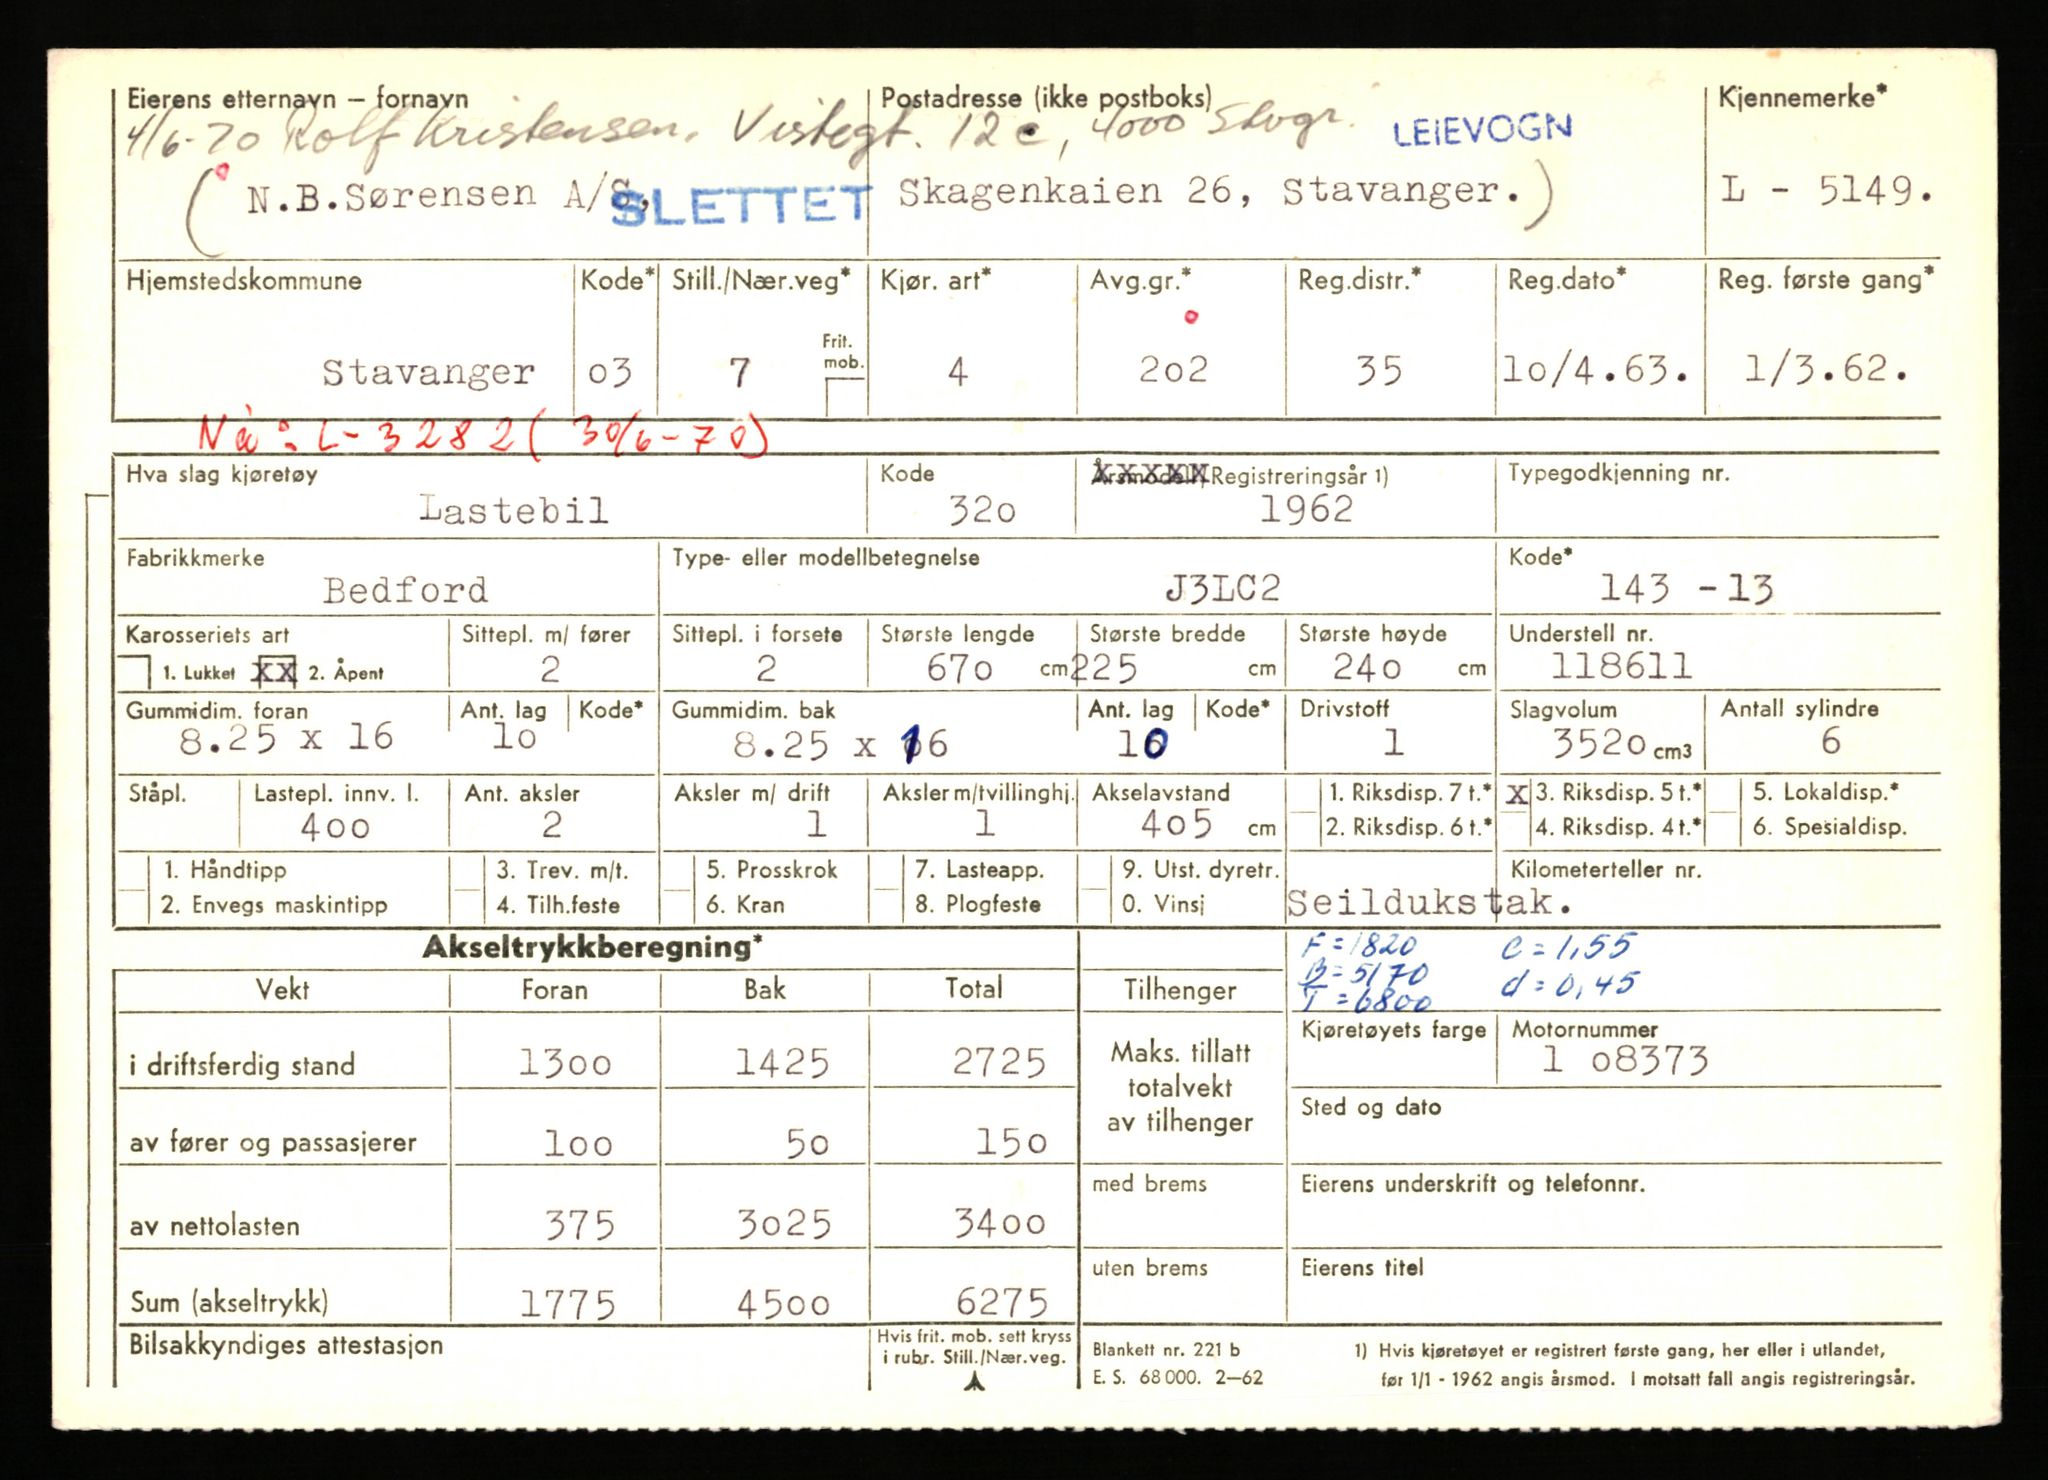 Eierens etternavn – fornavn Postadresse (ikke postboks) Kjennemerke*
4/6-70 Rolf Kristensen, Vistegt. 12c, 4000 Stvgr. LEIEVOGN
(N.B.Sørensen A/S, SLETTET Skagenkaien 26, Stavanger.) L - 5149.
Hjemstedskommune Kode* Still./Nær.veg* Kjør. art* Avg.gr.* Reg.distr.* Reg.dato* Reg. første gang*
Frit. mob.
Stavanger 03 7 4 202 35 10/4.63. 1/3.62.
Nå: L-3282 (30/6-70)
Hva slag kjøretøy Kode Årsmodell/Registreringsår 1) Typegodkjenning nr.
Lastebil 320 1962
Fabrikkmerke Type- eller modellbetegnelse Kode*
Bedford J3LC2 143 -13
Karosseriets art Sittepl. m/ fører Sittepl. i forsete Største lengde Største bredde Største høyde Understell nr.
1. Lukket XX 2. Åpent 2 2 670 cm 225 cm 240 cm 118611
Gummidim. foran Ant. lag Kode* Gummidim. bak Ant. lag Kode* Drivstoff Slagvolum Antall sylindre
8.25 x 16 10 8.25 x 16 10 1 3520 cm3 6
Ståpl. Lastepl. innv. l. Ant. aksler Aksler m/ drift Aksler m/tvillinghj. Akselavstand 1. Riksdisp. 7 t.* X 3. Riksdisp. 5 t.* 5. Lokaldisp.*
400 2 1 1 405 cm 2. Riksdisp. 6 t.* 4. Riksdisp. 4 t.* 6. Spesialdisp.
1. Håndtipp 3. Trev. m/t. 5. Prosskrok 7. Lasteapp. 9. Utst. dyretr. Kilometerteller nr.
2. Envegs maskintipp 4. Tilh.feste 6. Kran 8. Plogfeste 0. Vinsj Seildukstak.
Akseltrykkberegning* F = 1820 c = 1,55
B = 5170 d = 0,45
Vekt Foran Bak Total Tilhenger T = 6800
Kjøretøyets farge Motornummer
i driftsferdig stand 1300 1425 2725 Maks. tillatt totalvekt av tilhenger 1 08373
Sted og dato
av fører og passasjerer 100 50 150
med brems Eierens underskrift og telefonnr.
av nettolasten 375 3025 3400
uten brems Eierens titel
Sum (akseltrykk) 1775 4500 6275
Bilsakkyndiges attestasjon Hvis frit. mob. sett kryss i rubr. Still./Nær.veg.
Blankett nr. 221 b 1) Hvis kjøretøyet er registrert første gang, her eller i utlandet,
E. S. 68 000. 2–62 før 1/1 - 1962 angis årsmod. I motsatt fall angis registreringsår.